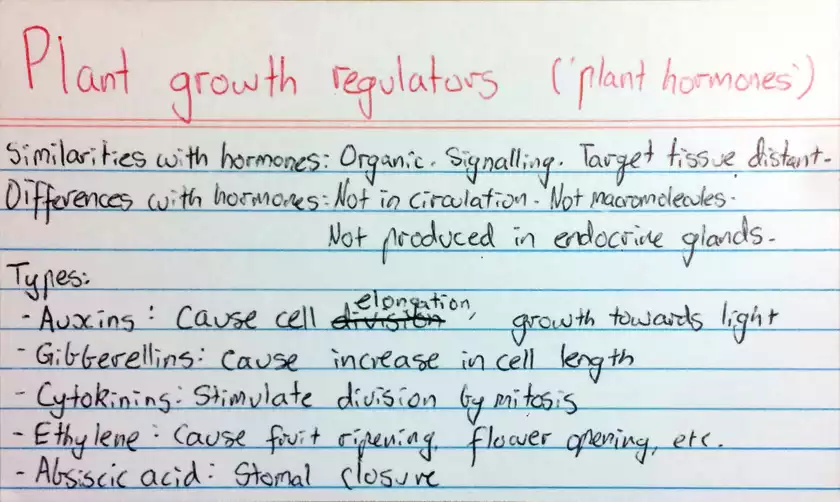 Plant growth regulators ('plant hormones')
Similarities with hormones: Organic. Signalling. Target tissue distant.
Differences with hormones: Not in circulation. Not macromolecules.
Not produced in endocrine glands.
Types:
- Auxins: Cause cell division elongation, growth towards light
- Gibberellins: Cause increase in cell length
- Cytokinins: Stimulate division by mitosis
- Ethylene: Cause fruit ripening, flower opening, etc.
- Absiscic acid: Stomal closure